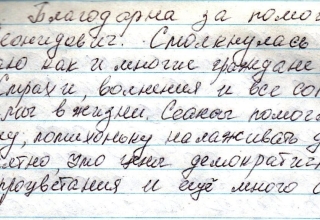 Благодарна за помощ
еонидович. Столкнулась
аю как и многие граждане
Страхи, волнения и все со
емы в жизни. Сеансы помог
ку, потихоньку налаживать
ятно это цены демократич
процветания и ещё много